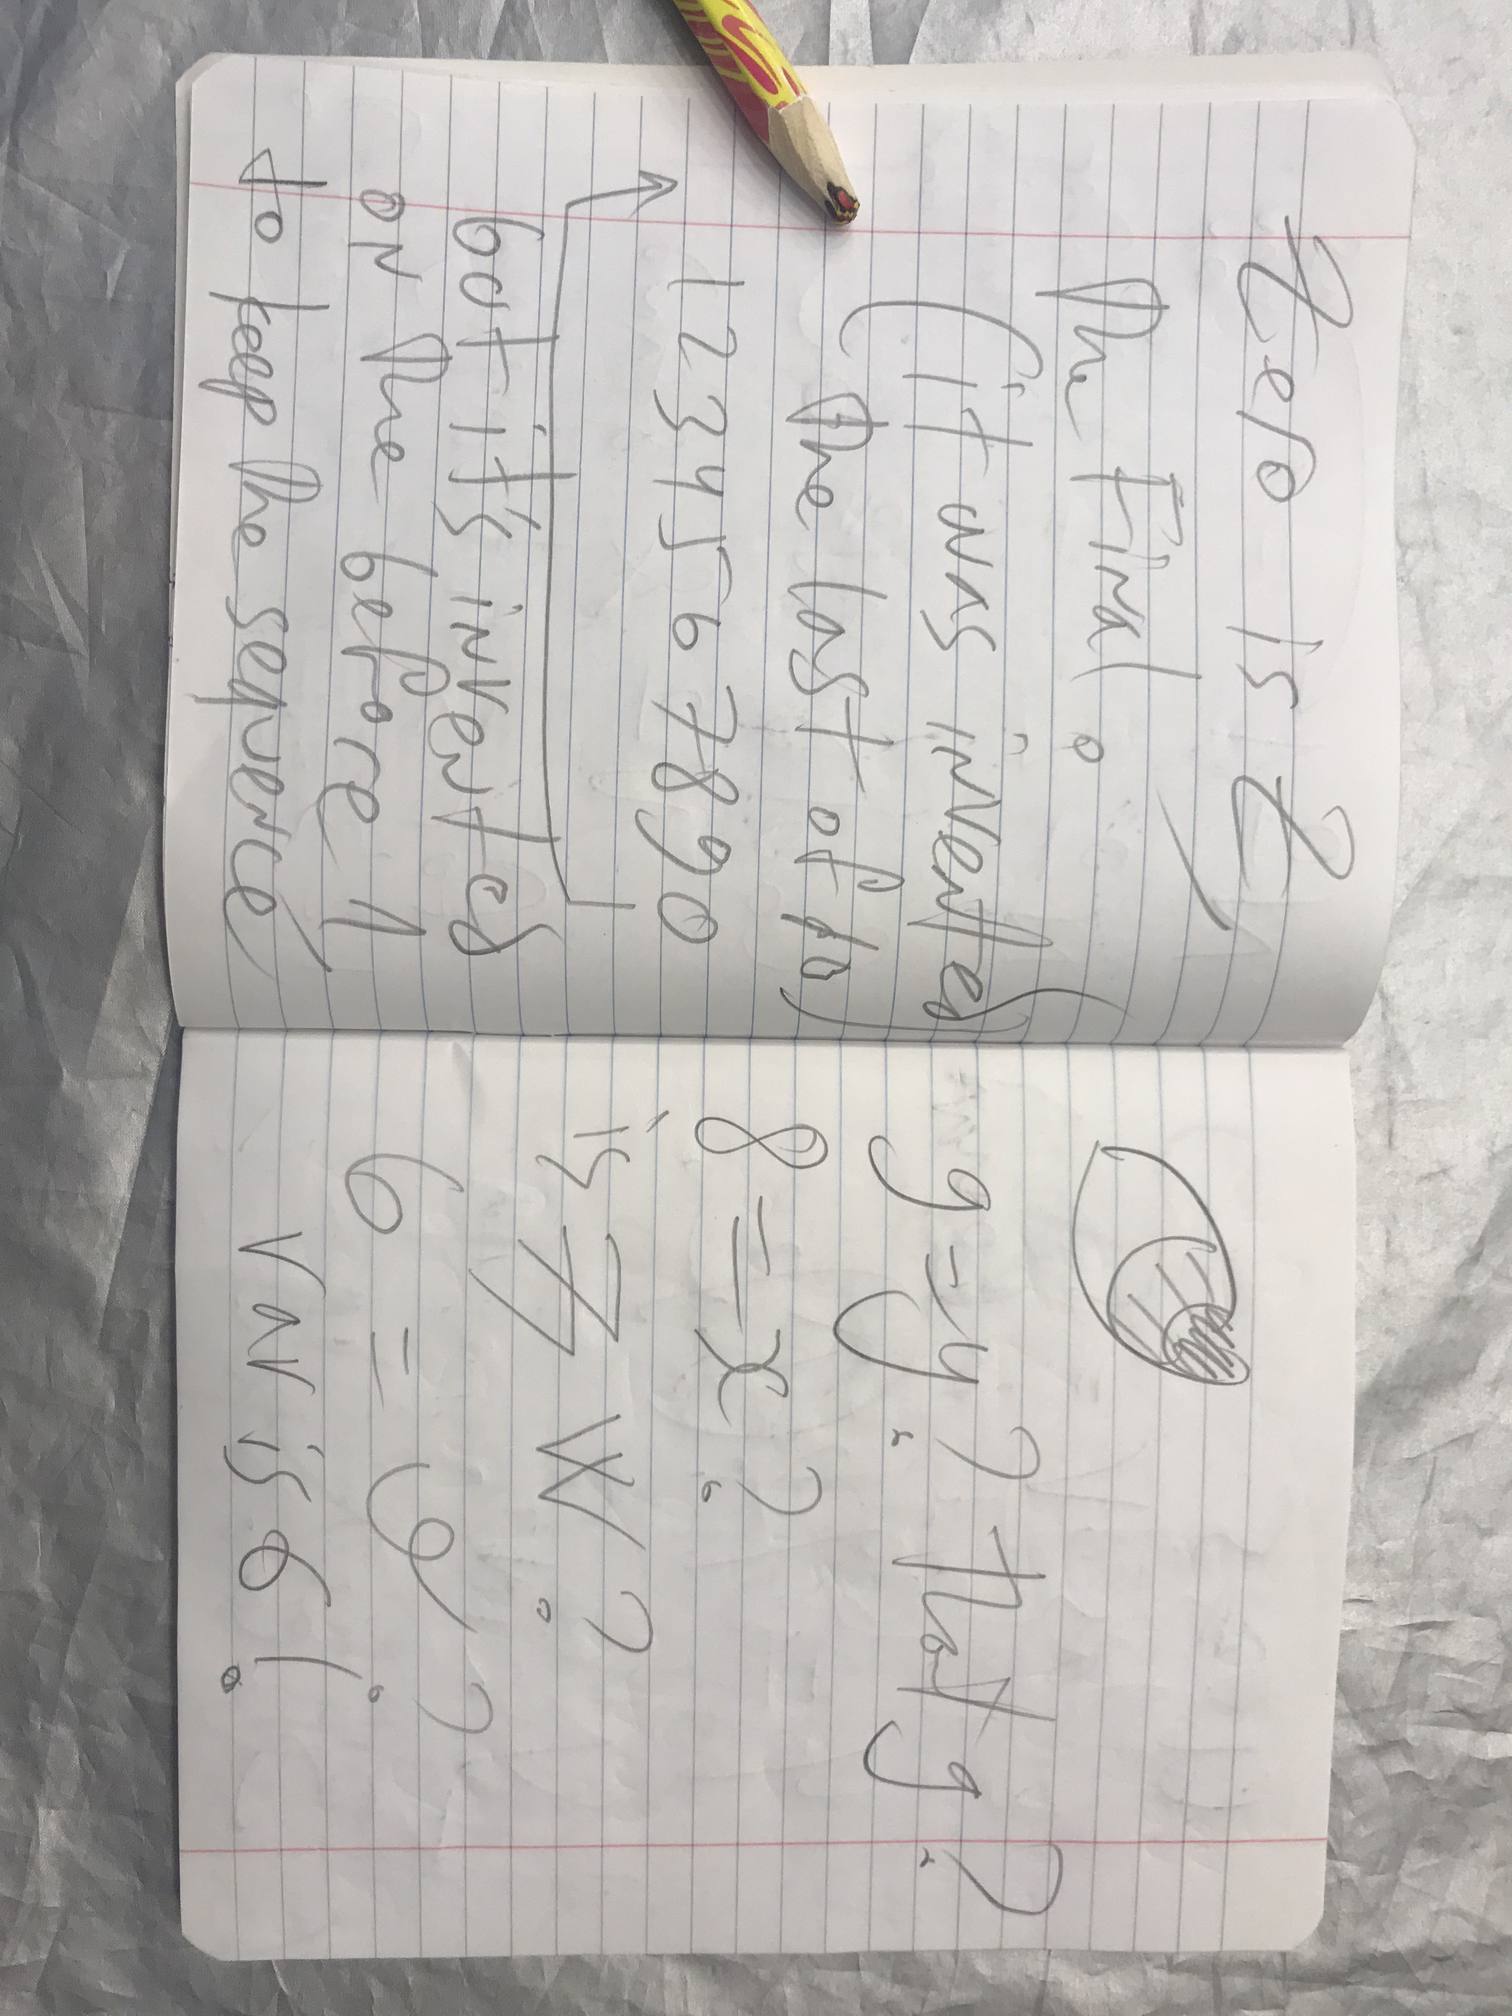 Zero is Z
The Final 0
(it was invented
the last of to)
1234567890
bot it's inventes
on the before 1
to keep the sequence
9=y? that g?
8=x?
is 7 W?
6 = V?
Var is 6!